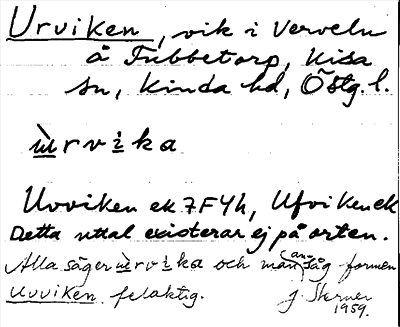 Urviken, vik i Verveln
å Fubbetorp, Kisa
sn, Kinda hd, Östg. l.
ùrvika
Uvviken ek 7F4h, Ufviken ek
Detta uttal existerar ej på orten.
Alla säger ùrvika och man ansåg formen
Uvviken felaktig. J. Sterner
1959.